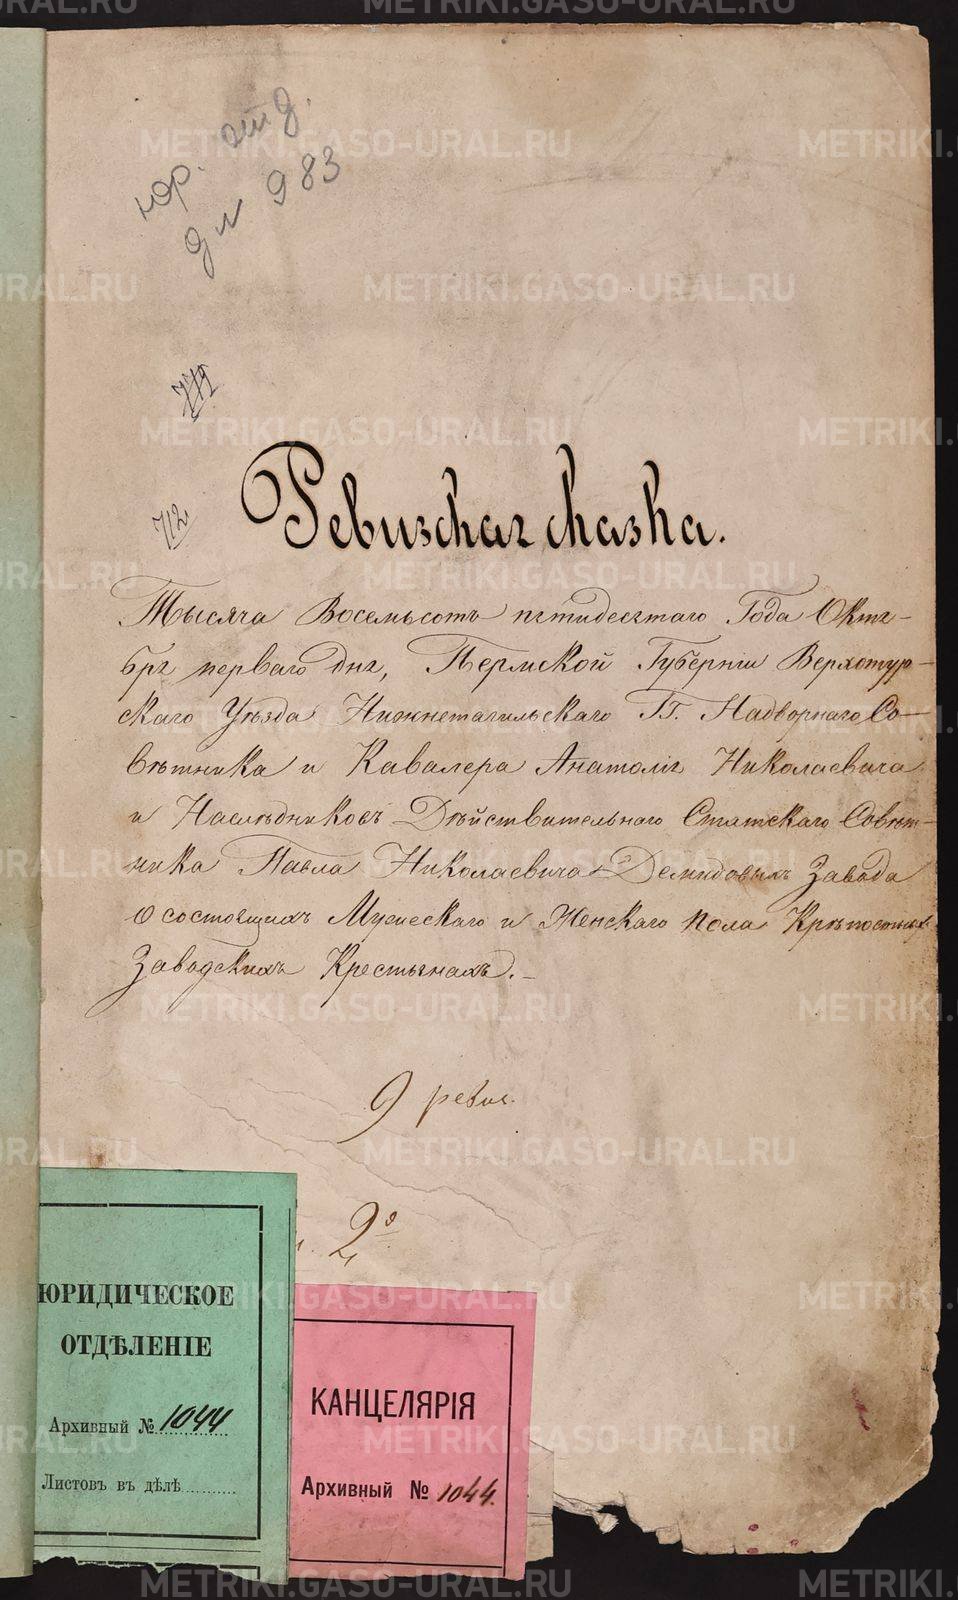 юр. отд.
д № 983
779
712
Ревизская сказка.
Тысяча Восемьсотъ пятидесятаго Года Октя-
бря перваго дня, Пермской Губерніи Верхотур-
скаго Уѣзда Нижнетагильскаго ГГ. Надворнаго Со-
вѣтника и Кавалера Анатолія Николаевича
и Наслѣдниковъ Дѣйствительнаго Статскаго Совѣт-
ника Павла Николаевича Демидовыхъ Завода
о состоящихъ Мужескаго и Женскаго пола Крѣпостныхъ
Заводскихъ Крестьянахъ.
9 ревиз.
2º
ЮРИДИЧЕСКОЕ
ОТДѢЛЕНІЕ
Архивный № 1044
Листовъ въ дѣлѣ
КАНЦЕЛЯРІЯ
Архивный № 1044.
METRIKI.GASO-URAL.RU